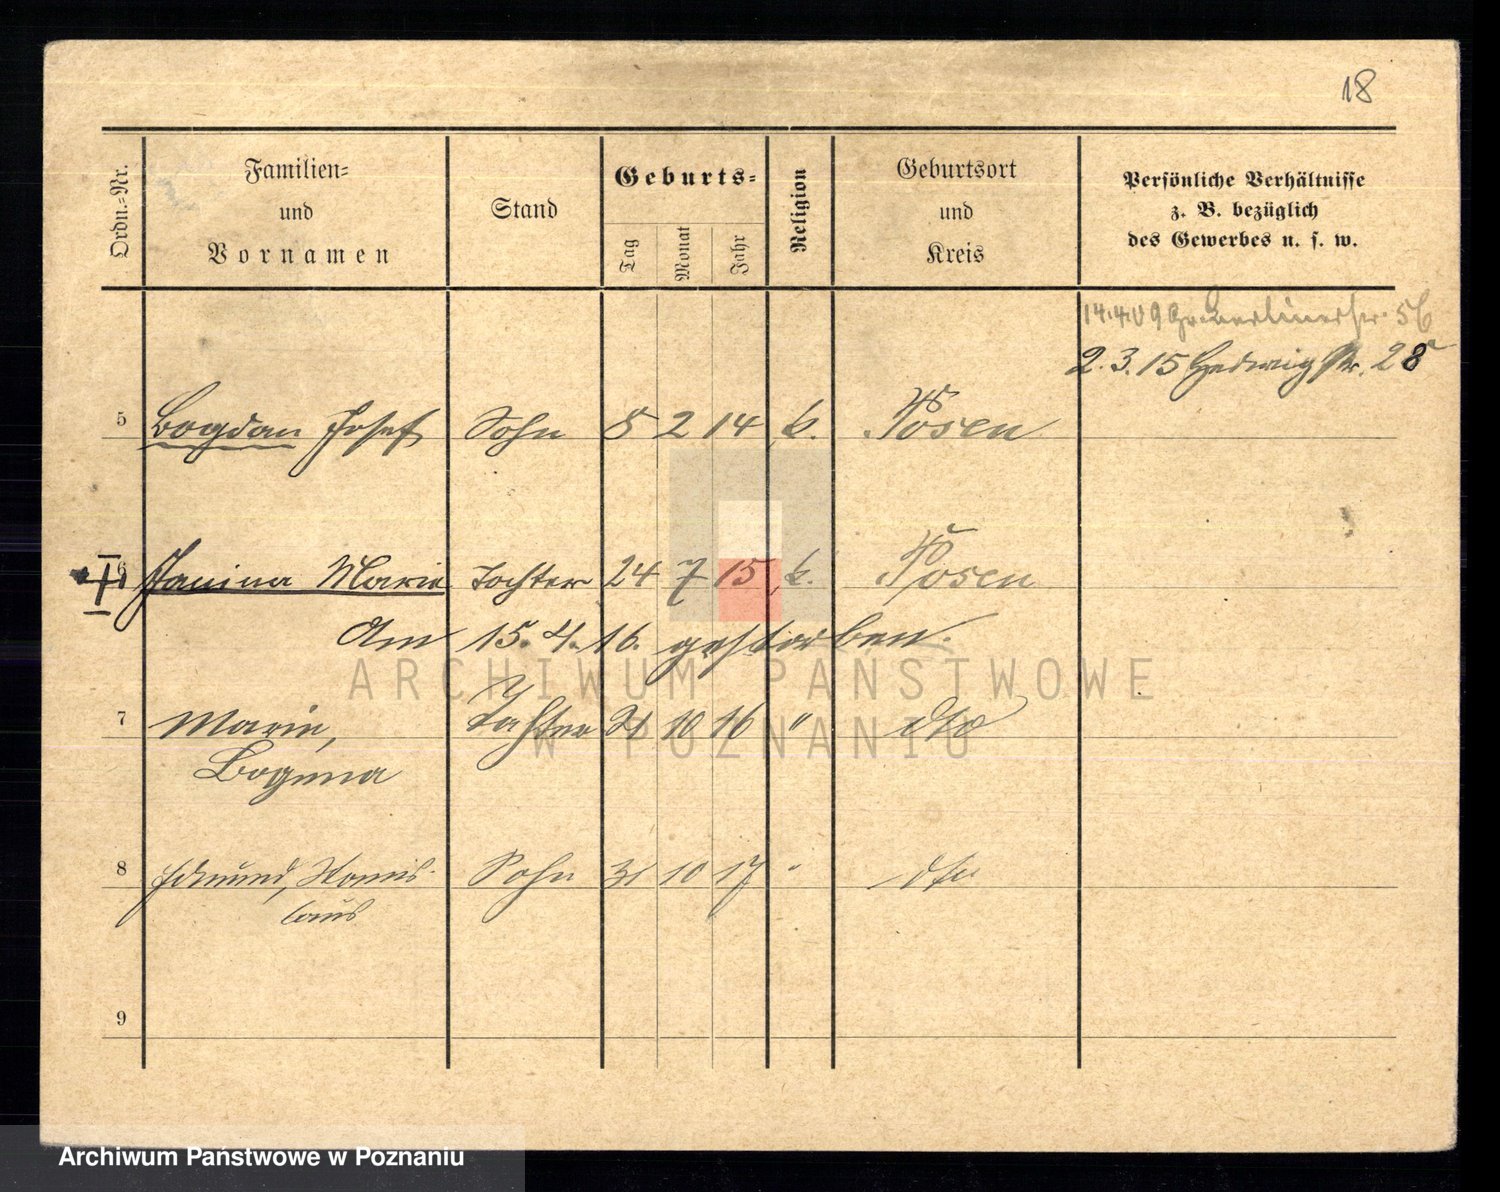 18
Ordn.-Nr.
Familien-
und
Vornamen
Stand
Geburts-
Tag
Monat
Jahr
Religion
Geburtsort
und
Kreis
Persönliche Verhältnisse
z. B. bezüglich
des Gewerbes u. s. w.
14.4.09 Gr. Berlinerstr. 56
2.3.15 Hedwigstr. 28
5 Bogdan Josef Sohn 8 2 14 k. Posen
6 Janina Marie Tochter 24 7 15 k. Posen
Am 15.4.16. gestorben.
7 Marie, Tochter 21 10 16 " dto
Boguma
8 Edmund, Stanis- Sohn 31 10 17 " dto
laus
9
ARCHIWUM PAŃSTWOWE
W POZNANIU
Archiwum Państwowe w Poznaniu